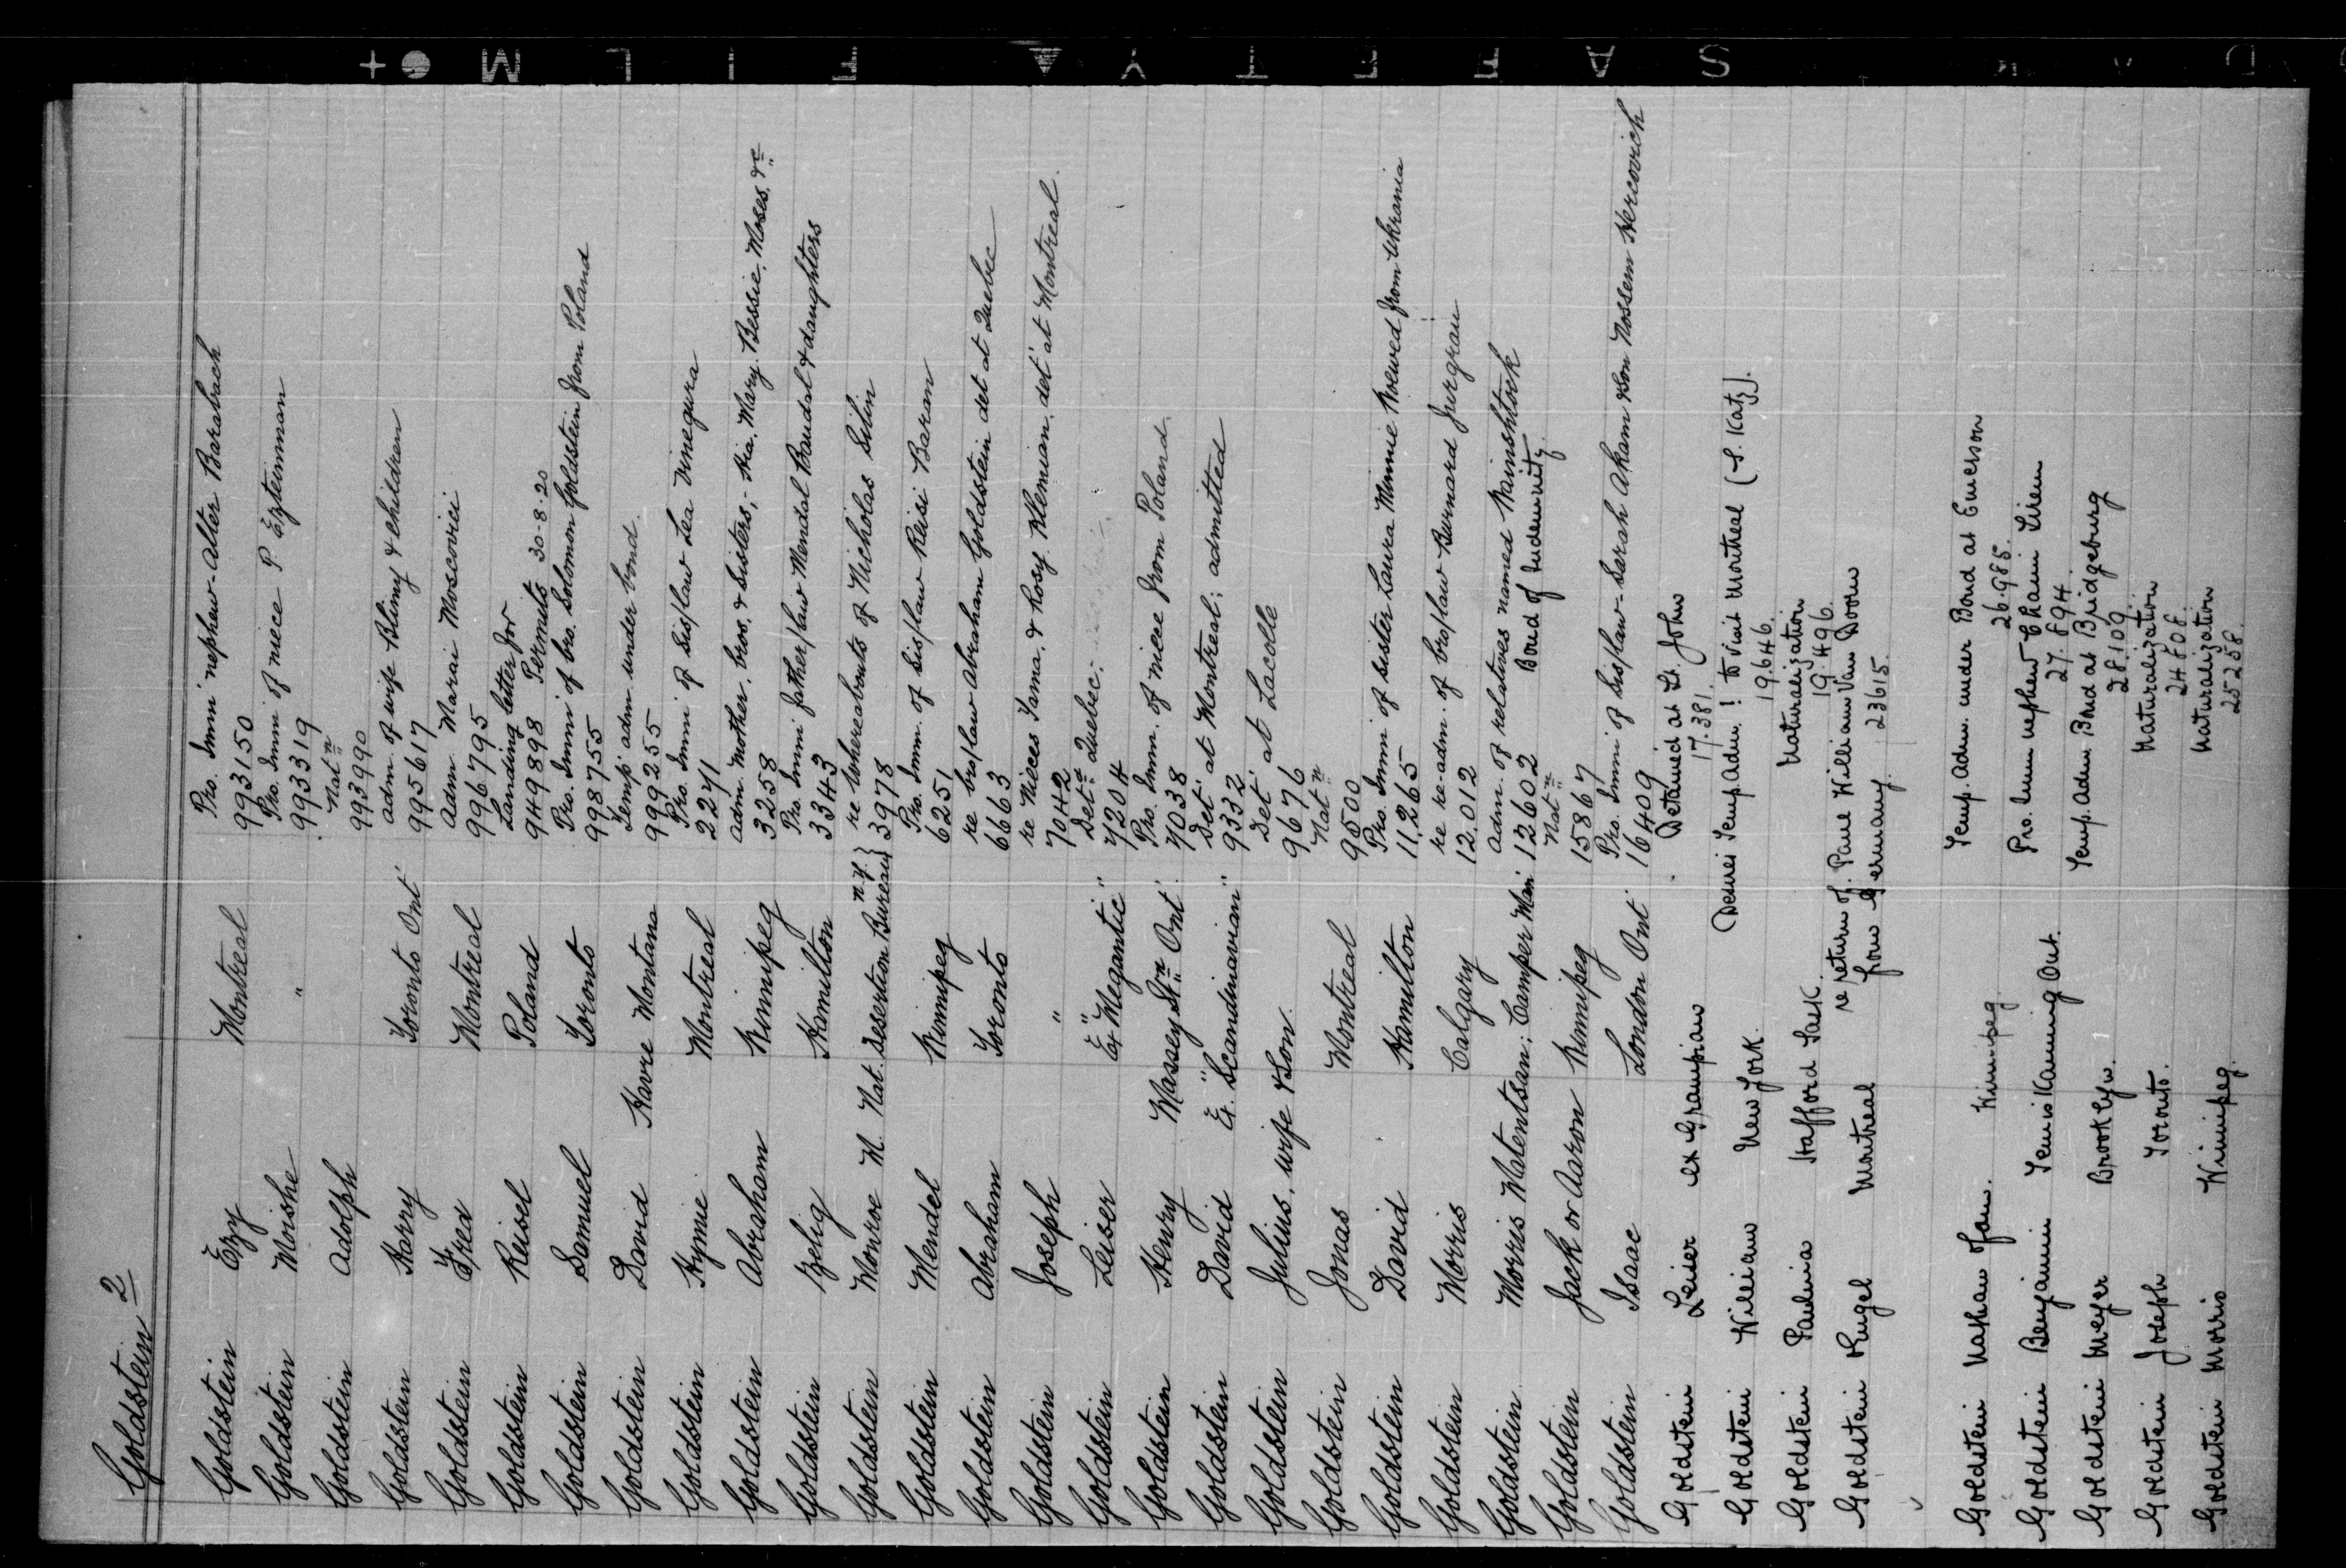 Goldstein 2
Goldstein Ezy Montreal Pro. Immi nephew - Alter Barabach
993150
Goldstein Moishe " Pro. Immi of niece P Ezterman
993319
Goldstein Adolph Nat n
993990
Goldstein Harry Toronto Ont adm. of wife Blimy & children
995617
Goldstein Fred Montreal Adm Marai Moscovici
996795
Goldstein Reisel Poland Landing letter for
949898 Permits 30-8-20
Goldstein Samuel Toronto Pro. Immi of bro. Solomon Goldstein from Poland
998755
Goldstein David Havre Montana Temp. adm. under bond.
999255
Goldstein Hymie Montreal Pro. Immi of sis/law Lea Vinegura
2271
Goldstein Abraham Winnipeg adm. mother, bros. & sisters, - Mary. Bessie. Moses. &c
3258
Goldstein Zelig Hamilton Pro. Immi father/law Mendal Baudal & daughters
3343
Goldstein Monroe M. Nat. Desertion Bureau N.Y. re whereabouts of Nicholas Silin
3978
Goldstein Mendel Winnipeg Pro. Imm. of sis/law Reisi Baran
6251
Goldstein Abraham Toronto re bro/law Abraham Goldstein det at Quebec
6663
Goldstein Joseph " re Nieces Tama. & Rosy Klemian. det at Montreal.
7042
Goldstein Leiser Ex "Megantic" Det d Quebec;
7204
Goldstein Henry Massey Stn Ont Pro. Imm. of niece from Poland.
7038
Goldstein David Ex. "Scandinavian" Det at Montreal; admitted
9332
Goldstein Julius, wife & Son. Det at Lacolle
9676
Goldstein Jonas Montreal Nat n
9500
Goldstein David Hamilton Pro. Immi of sister Laura Minnie from Ukrania
11,265
Goldstein Morris Calgary re re-adm. of bro/law Bernard Jurgrau
12.012
Goldstein Morris Watentsan; Camper Man adm. of relatives named Wainshtock
12602 Bond of Indemnity.
Goldstein Jack or Aaron Winnipeg Nat n
15867
Goldstein Isaac London Ont Pro. Immi of sis/law - Sarah Akam & son Nossem Hercovich
16409
Goldstein Leiser ex Grampian Detained at St. John
17.381.
Goldstein William New York. Desires Temp. Adm. ! to visit Montreal (S. Katz).
19.646.
Goldstein Paulina Stafford Sask. Naturalization
19.496.
Goldstein Rugel Montreal re return of Paul William Van Doorn
from Germany. 23615.
Goldstein Nathan & fam. Winnipeg. Temp. Adm. under Bond at Emerson
26.985.
Goldstein Benjamin Temiskaming Ont. Pro. Imm nephew Chaim Lirem
27.894.
Goldstein Meyer Brooklyn. Temp. Adm Bond at Bridgeburg
28109
Goldstein Joseph Toronto. Naturalization
24808.
Goldstein Morris Winnipeg. Naturalization
25258.
S A F E T Y F I L M